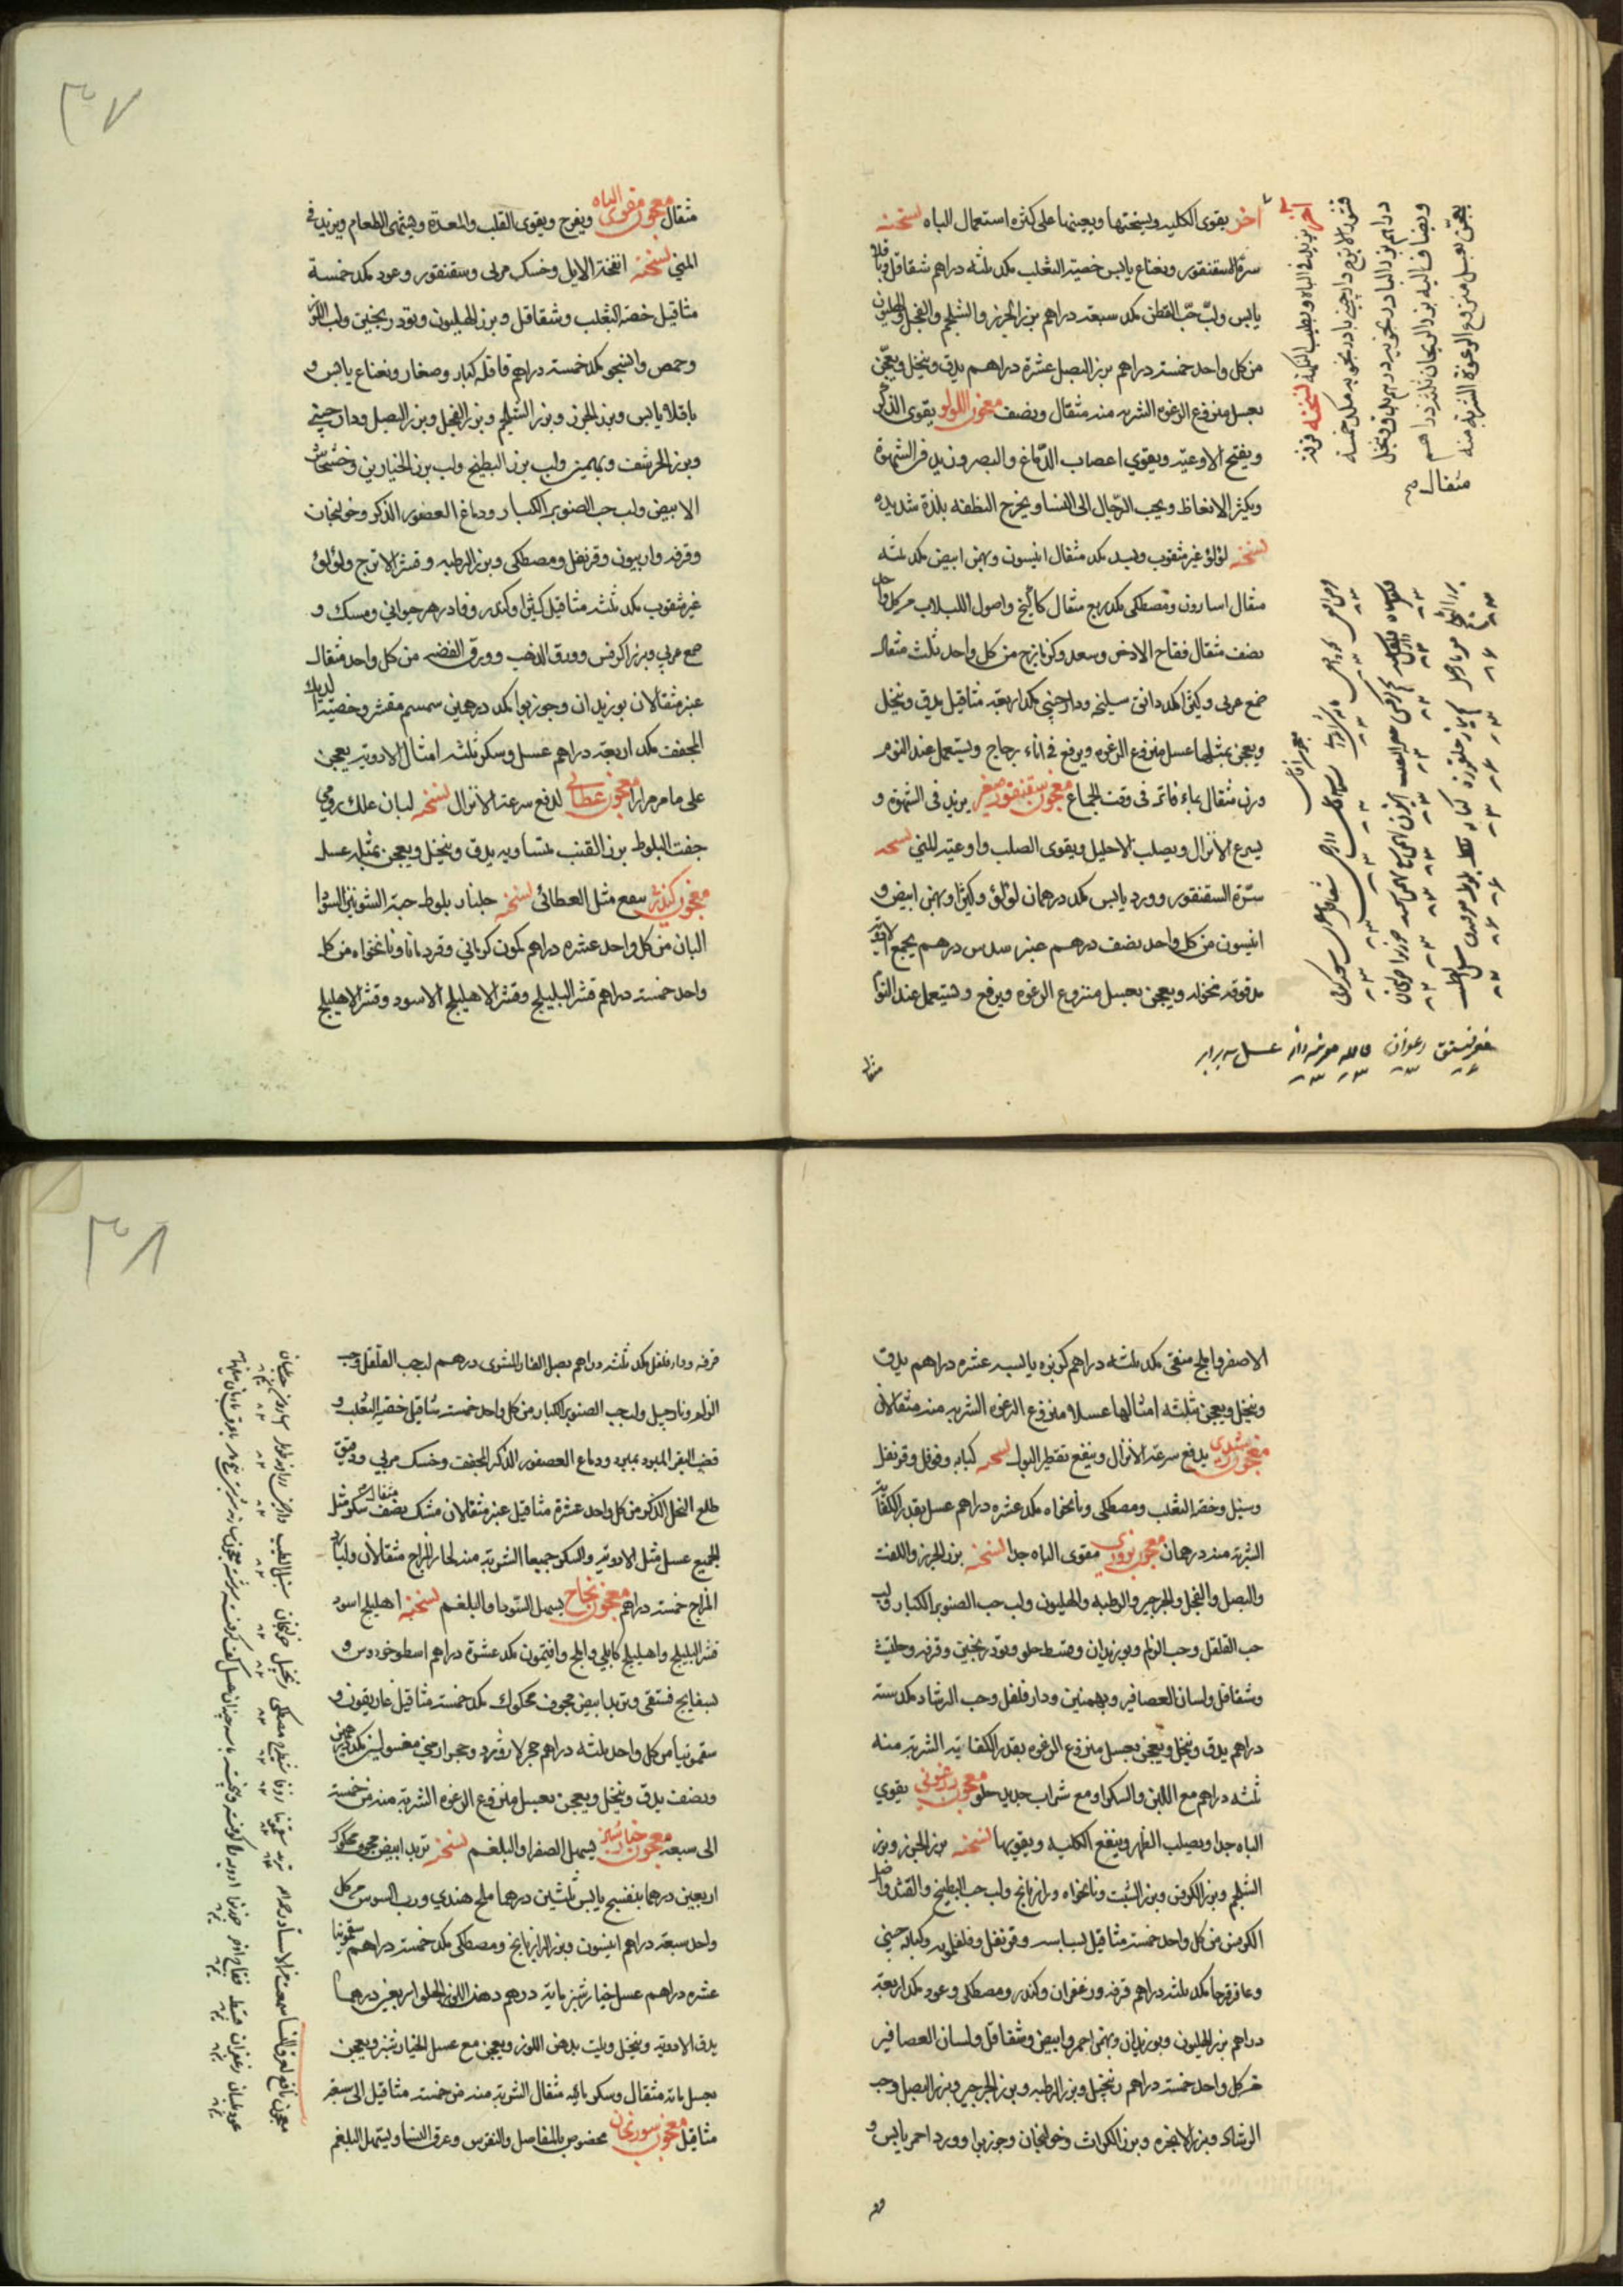 اخر يقوى الكليه ويسخنها ويعينها على كثرة استعمال الباه نسخته
سرة السقنقور ونعناع يابس خصية الثعلب مكد ثلثه دراهم شقاقل
يابس ولب حب القطن مكد سبعة دراهم بزر الجزر والشلجم والفجل والهليون
من كل واحد خمسة دراهم بزر البصل عشرة دراهم يدق وينخل ويعجن
بعسل منزوع الرغوه الشربه منه مثقال ونصف معجون اللولو يقوى الذكر
ويفتح الاوعيه ويقوي اعصاب الدماغ والبصر ويزيد في الشهوة
ويكثر الانعاظ ويحب الرجال الى النسا ويخرج النطفه بلذة شديده
نسخته لؤلؤ غير مثقوب وبسد مكد مثقال انيسون وبهمن ابيض مكد ثلثه
مثقال اسارون ومصطكى مكد ربع مثقال كاكنج واصول اللبلاب من كل واحد
نصف مثقال فقاح الاذخر وسعد وكزمازج من كل واحد ثلث مثقال
صمغ عربى وكثيرا مكد دانق سليخه ودارچينى مكد اربعة مثاقيل يدق وينخل
ويعجن بمثلها عسل منزوع الرغوه ويرفع فى اناء زجاج ويستعمل عند النوم
وزن مثقال بماء فاتر فى وقت الجماع معجون سقنقور صغير يزيد فى الشهوة و
يسرع الانزال ويصلب الاحليل ويقوى الصلب واوعية المني نسخته
سرة السقنقور وورد يابس مكد درهمان لؤلؤ وكثيرا وبهمن ابيض و
انيسون من كل واحد نصف درهم عنبر سدس درهم يجمع الادويه
مدقوقه منخوله ويعجن بعسل منزوع الرغوه ويرفع ويستعمل عند النوم
مثقال
اخر يزيد فى الباه ويطيب النكهة نسخته قرفه
قشر الاترج دارچينى بادرنجبويه مكد خمسة
دراهم بزر البادرنجبويه درهم يدق وينخل
ويضاف اليه بزر الريحان ثلثه دراهم
يعجن بعسل منزوع الرغوة الشربة منه
مثقال
مغز فستق زعفران قاقله عسل سه برابر
٣٧
مثقال معجون مقوى الباه ويفرح ويقوى القلب والمعدة ويشهى الطعام ويزيد فى
المني نسخته انفخة الايل وخسك مربى وسقنقور وعود مكد خمسة
مثاقيل خصية الثعلب وشقاقل وبزر الهليون وتودريجين ولب اللوز
وحمص والنيجى مكد خمسة دراهم قاقله كبار وصغار ونعناع يابس و
باقلا يابس وبزر الجزر وبزر الشلجم وبزر الفجل وبزر البصل ودارچينى
وبزر الحرشف وبهمين ولب بزر البطيخ ولب بزر الخيارين وخشخاش
الابيض ولب حب الصنوبر الكبار ودماغ العصفور الذكر وخولنجان
وقرفه واربيون وقرنفل ومصطكى وبزر الرطبه وقشر الاترج ولؤلؤ
غير مثقوب مكد ثلثه مثاقيل كثيرا وكندر وفادزهر حيوانى ومسك و
صمغ عربي وبزر الكرفس وورق الذهب وورق الفضه من كل واحد مثقال
عنبر مثقالان بوزيدان وجوزبوا مكد درهمين سمسم مقشر وخصية الديك
المجفف مكد اربعة دراهم عسل وسكر ثلثه امثال الادويه يعجن
على ما مر مرارا معجون عطائى لدفع سرعة الانزال نسخته لبان علك رومي
جفت البلوط بزر القنب متساويه يدق وينخل ويعجن بمثليه عسل
معجون كندر ينفع مثل العطائى نسخته جلنار بلوط حبة الشونيز السودا
البان من كل واحد عشره دراهم كمون كرمانى وقردمانا ونانخواه من كل
واحد خمسة دراهم قشر البليلج وقشر الاهليلج الاسود وقشر الاهليلج
الاصفر واملج منقى مكد ثلثه دراهم كزبره يابسه عشره دراهم يدق
وينخل ويعجن بثلثه امثالها عسلا منزوع الرغوه الشربه منه مثقالان
معجون يدفع سرعة الانزال وينفع تقطير البول نسخته كبابه وفوفل وقرنفل
وسنبل وخصية الثعلب ومصطكى ونانخواه مكد عشره دراهم عسل بقدر الكفاية
الشربة منه درهمان معجون بزورى مقوى الباه جدا نسخته بزر الجزر واللفت
والبصل والفجل والجرجير والرطبه والهليون ولب حب الصنوبر الكبار ولب
حب القلقل وحب الزلم وبوزيدان وقسط حلو وتودريجين وقرفه وحلتيت
وشقاقل ولسان العصافير وبهمنين ودارفلفل وحب الرشاد مكد ستة
دراهم يدق وينخل ويعجن بعسل منزوع الرغوه بقدر الكفاية الشربة منه
ثلثه دراهم مع اللبن والسكر او مع شراب جديد حلو معجون يقوي
الباه جدا ويصلب الظهر وينفع الكليه ويقويها نسخته بزر الجزر وبزر
الشلجم وبزر الكرفس وبزر الشبت ونانخواه ورازيانج ولب حب البطيخ والقثد واصل
الكرفس من كل واحد خمسة مثاقيل بسباسه وقرنفل وفلفلمويه وكبابه چينى
وعاقرقرحا مكد ثلثه دراهم قرفه وزعفران وكندر ومصطكى وعود مكد اربعة
دراهم بزر الهليون وبوزيدان وبهمن احمر وابيض وشقاقل ولسان العصافير
من كل واحد خمسة دراهم زنجبيل وبزر الرطبه وبزر الجرجير وبزر البصل وحب
الرشاد وبزر الانجره وبزر الكراث وخولنجان وجوزبوا وورد احمر يابس و
٣٨
قرفه ودارفلفل مكد ثلثه دراهم بصل الفار المشوى درهم لب حب القلقل وحب
الزلم ونارجيل ولب حب الصنوبر الكبار من كل واحد خمسة مثاقيل خصية الثعلب و
قضيب البقر المبرود بمبرد ودماغ العصفور الذكر المجفف وخسك مربى ودقيق
طلع النخل الذكر من كل واحد عشرة مثاقيل عنبر مثقالان مشك نصف مثقال سكر مثل
الجميع عسل مثل الادويه والسكر جميعا الشربة منه لحار المزاج مثقالان ولبارد
المزاج خمسة دراهم معجون نجاح يسهل السودا والبلغم نسخته اهليلج اسود
قشر البليلج واهليلج كابلى واملج وافتيمون مكد عشرة دراهم اسطوخودوس و
بسفايج فستقى وتربد ابيض مجوف محكوك مكد خمسة مثاقيل غاريقون و
سقمونيا من كل واحد ثلثه دراهم حجر لاژورد وحجر ارمنى مغسولين مكد درهمين
ونصف يدق وينخل ويعجن بعسل منزوع الرغوه الشربة منه من خمسة
الى سبعة معجون خيارشنبر يسهل الصفرا والبلغم نسخته تربد ابيض مجوف محكوك
اربعين درهما بنفسج يابس ثلثين درهما ملح هندي ورب السوس من كل
واحد سبعة دراهم انيسون وبزر الرازيانج ومصطكى مكد خمسة دراهم سقمونيا
عشره دراهم عسل خيارشنبر مايه درهم دهن اللوز الحلو اربعين درهما
يدق الادويه وينخل ويلت بدهن اللوز ويعجن مع عسل الخيارشنبر ويعجن
بعسل مايه مثقال وسكر مايه مثقال الشربة منه من خمسة مثاقيل الى سبعة
مثاقيل معجون سورنجان مخصوص بالمفاصل والنقرس وعرق النسا ويسهل البلغم